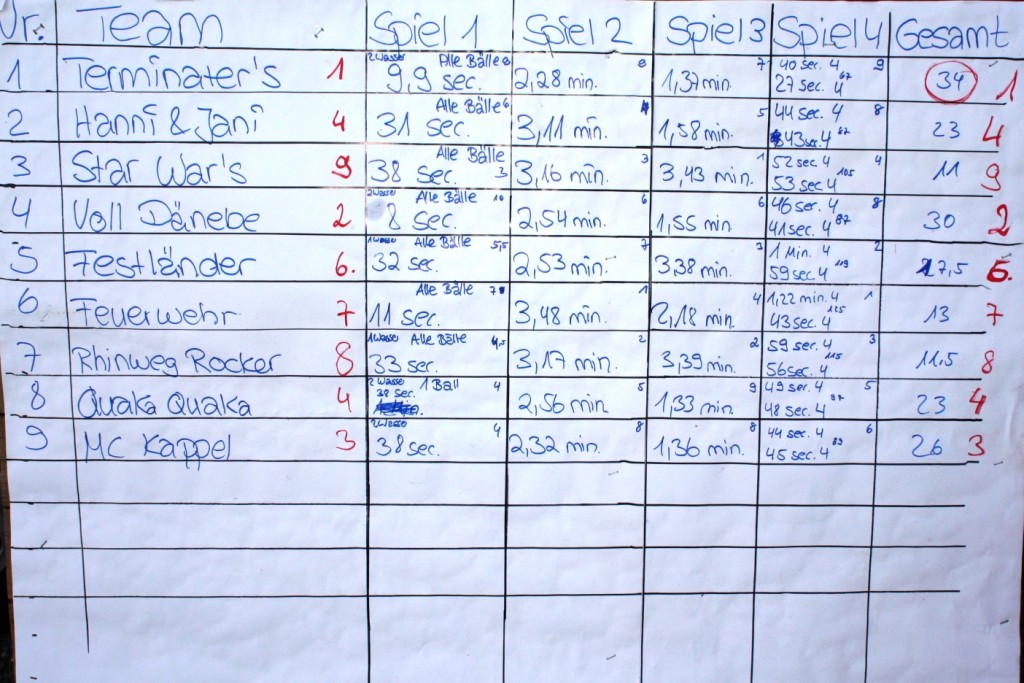 Nr. Team Spiel 1 Spiel 2 Spiel 3 Spiel 4 Gesamt
1 Terminater's 1 2 Wasser Alle Bälle 8 9,9 sec. 2,28 min. 8 1,37 min. 7 40 sec. 4 9 27 sec. 4 67 34 1
2 Hanni & Jani 4 Alle Bälle 6 31 sec. 3,11 min. 4 1,58 min. 5 44 sec. 4 8 43 sec. 4 87 23 4
3 Star War's 9 Alle Bälle 3 38 sec. 3,16 min. 3 3,43 min. 1 52 sec. 4 4 53 sec. 4 105 11 9
4 Voll Dänebe 2 2 Wasser Alle Bälle 10 8 sec. 2,54 min. 6 1,55 min. 6 46 ser. 4 8 41 sec. 4 87 30 2
5 Festländer 6. 1 Wasser Alle Bälle 5,5 32 sec. 2,53 min. 7 3,38 min. 3 1 Min. 4 2 59 sec. 4 119 17,5 6.
6 Feuerwehr 7 Alle Bälle 7 11 sec. 3,48 min. 1 2,18 min. 4 1,22 min. 4 1 43 sec. 4 125 13 7
7 Rhinweg Rocker 8 1 Wasser Alle Bälle 4,5 33 sec. 3,17 min. 2 3,39 min. 2 59 ser. 4 3 56 sec. 4 115 11.5 8
8 Quaka Quaka 4 2 Wasser 1 Ball 4 38 sec. 2,56 min. 5 1,33 min. 9 49 ser. 4 5 48 sec. 4 97 23 4
9 MC Kappel 3 2 Wasser 4 38 sec. 2,32 min. 8 1,36 min. 8 44 sec. 4 6 45 sec. 4 89 26 3